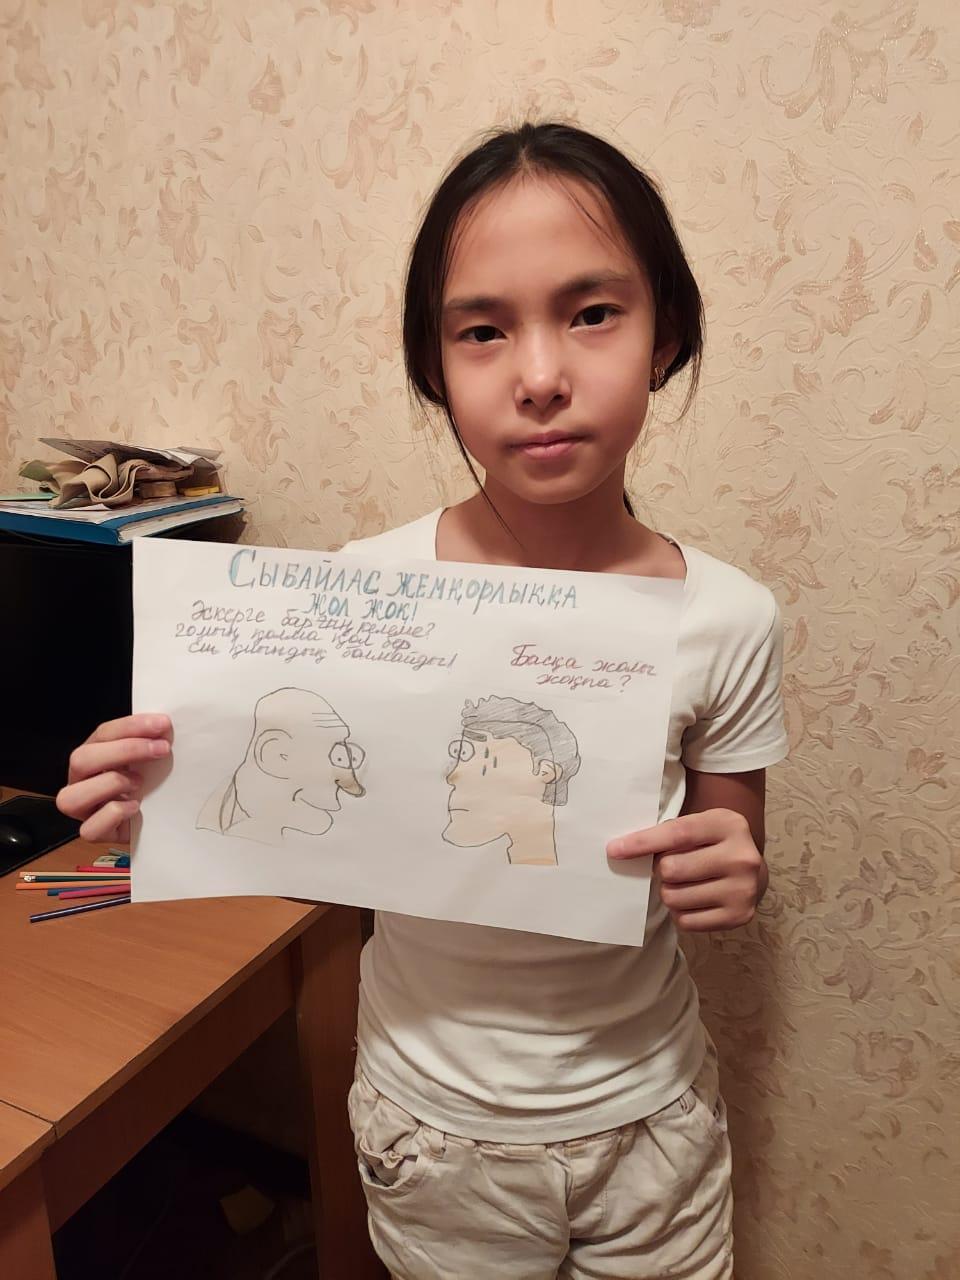 Сыбайлас жемқорлыққа
жол жоқ!
Әскерге барғың келеме?
қолма қол бер
еш қиындық болмайды!
Басқа жолы
жоқпа?